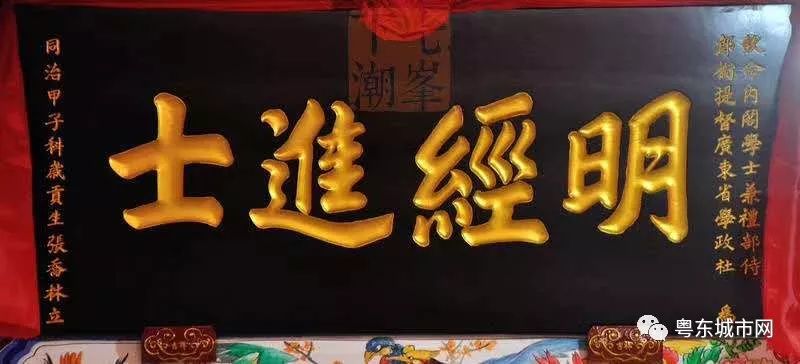 欽命內閣學士兼禮部侍
郎銜提督廣東省學政杜 為
明經進士
同治甲子科歲貢生張喬林立
峯
潮
粤东城市网